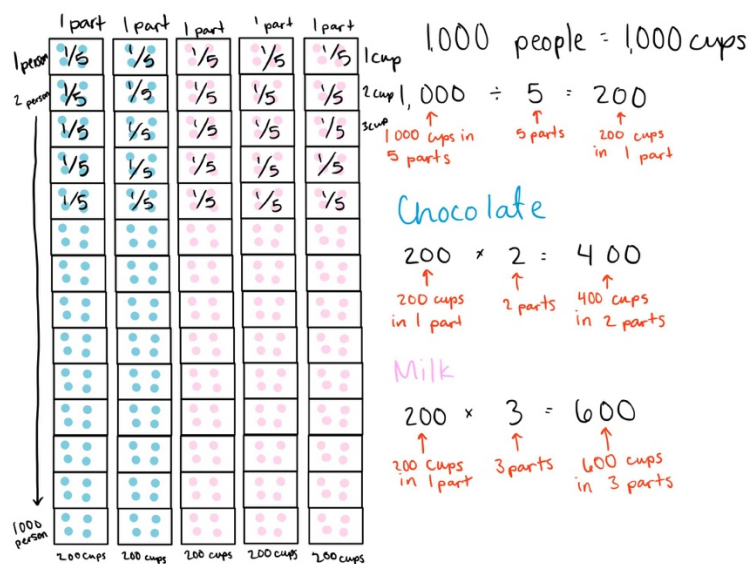 1 part 1 part 1 part 1 part 1 part
1 person 1/5 1/5 1/5 1/5 1/5 1 cup
2 person 1/5 1/5 1/5 1/5 1/5 2 cup
1/5 1/5 1/5 1/5 1/5 3 cup
1/5 1/5 1/5 1/5 1/5
1/5 1/5 1/5 1/5 1/5
1000 person
200 cups 200 cups 200 cups 200 cups 200 cups
1,000 people = 1,000 cups
1,000 ÷ 5 = 200
1000 cups in 5 parts
5 parts
200 cups in 1 part
Chocolate
200 × 2 = 400
200 cups in 1 part
2 parts
400 cups in 2 parts
Milk
200 × 3 = 600
200 cups in 1 part
3 parts
600 cups in 3 parts